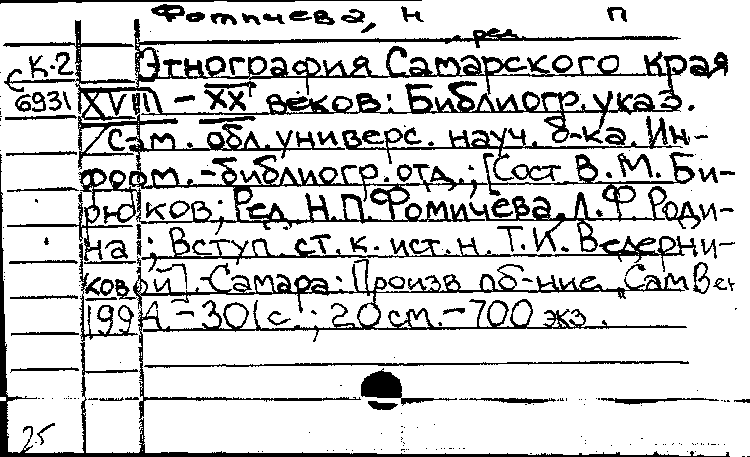 Фомичева, Н П
ред.
К-2 Этнография Самарского края
с 6931 XVIII – XX веков: Библиогр. указ.
/Сам. обл. универс. науч. б-ка. Ин-
форм.-библиогр. отд.; [Сост В. М. Би-
рюков; Ред. Н.П. Фомичёва, Л.Ф Роди-
на; Вступ. ст. к. ист. н. Т.И. Ведерни-
ковой]. - Самара: Произв об-ние
1994. - 301 с.; 20 см. - 700 экз.
25